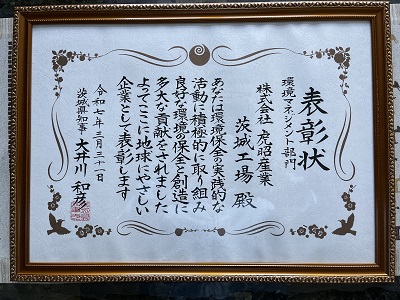 表彰状
環境マネジメント部門
株式会社 虎沼産業
茨城工場 殿
あなたは環境保全の実践的な
活動に積極的に取り組み
良好な環境の保全と創造に
多大な貢献をされました
よってここに地球にやさしい
企業として表彰します
令和七年三月三十一日
茨城県知事 大井川 和彦